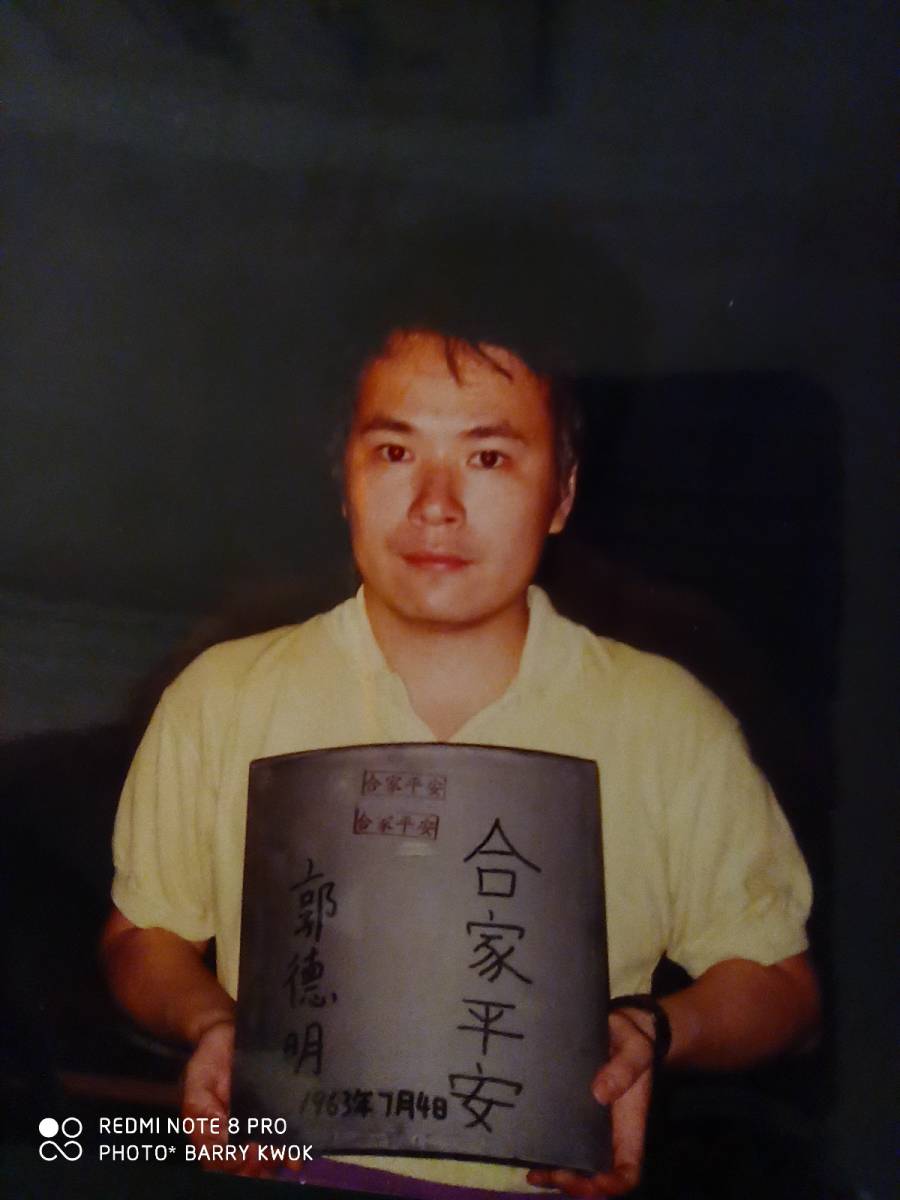 合家平安
合家平安
合家平安
郭德明
1963年7月4日
REDMI NOTE 8 PRO
PHOTO* BARRY KWOK